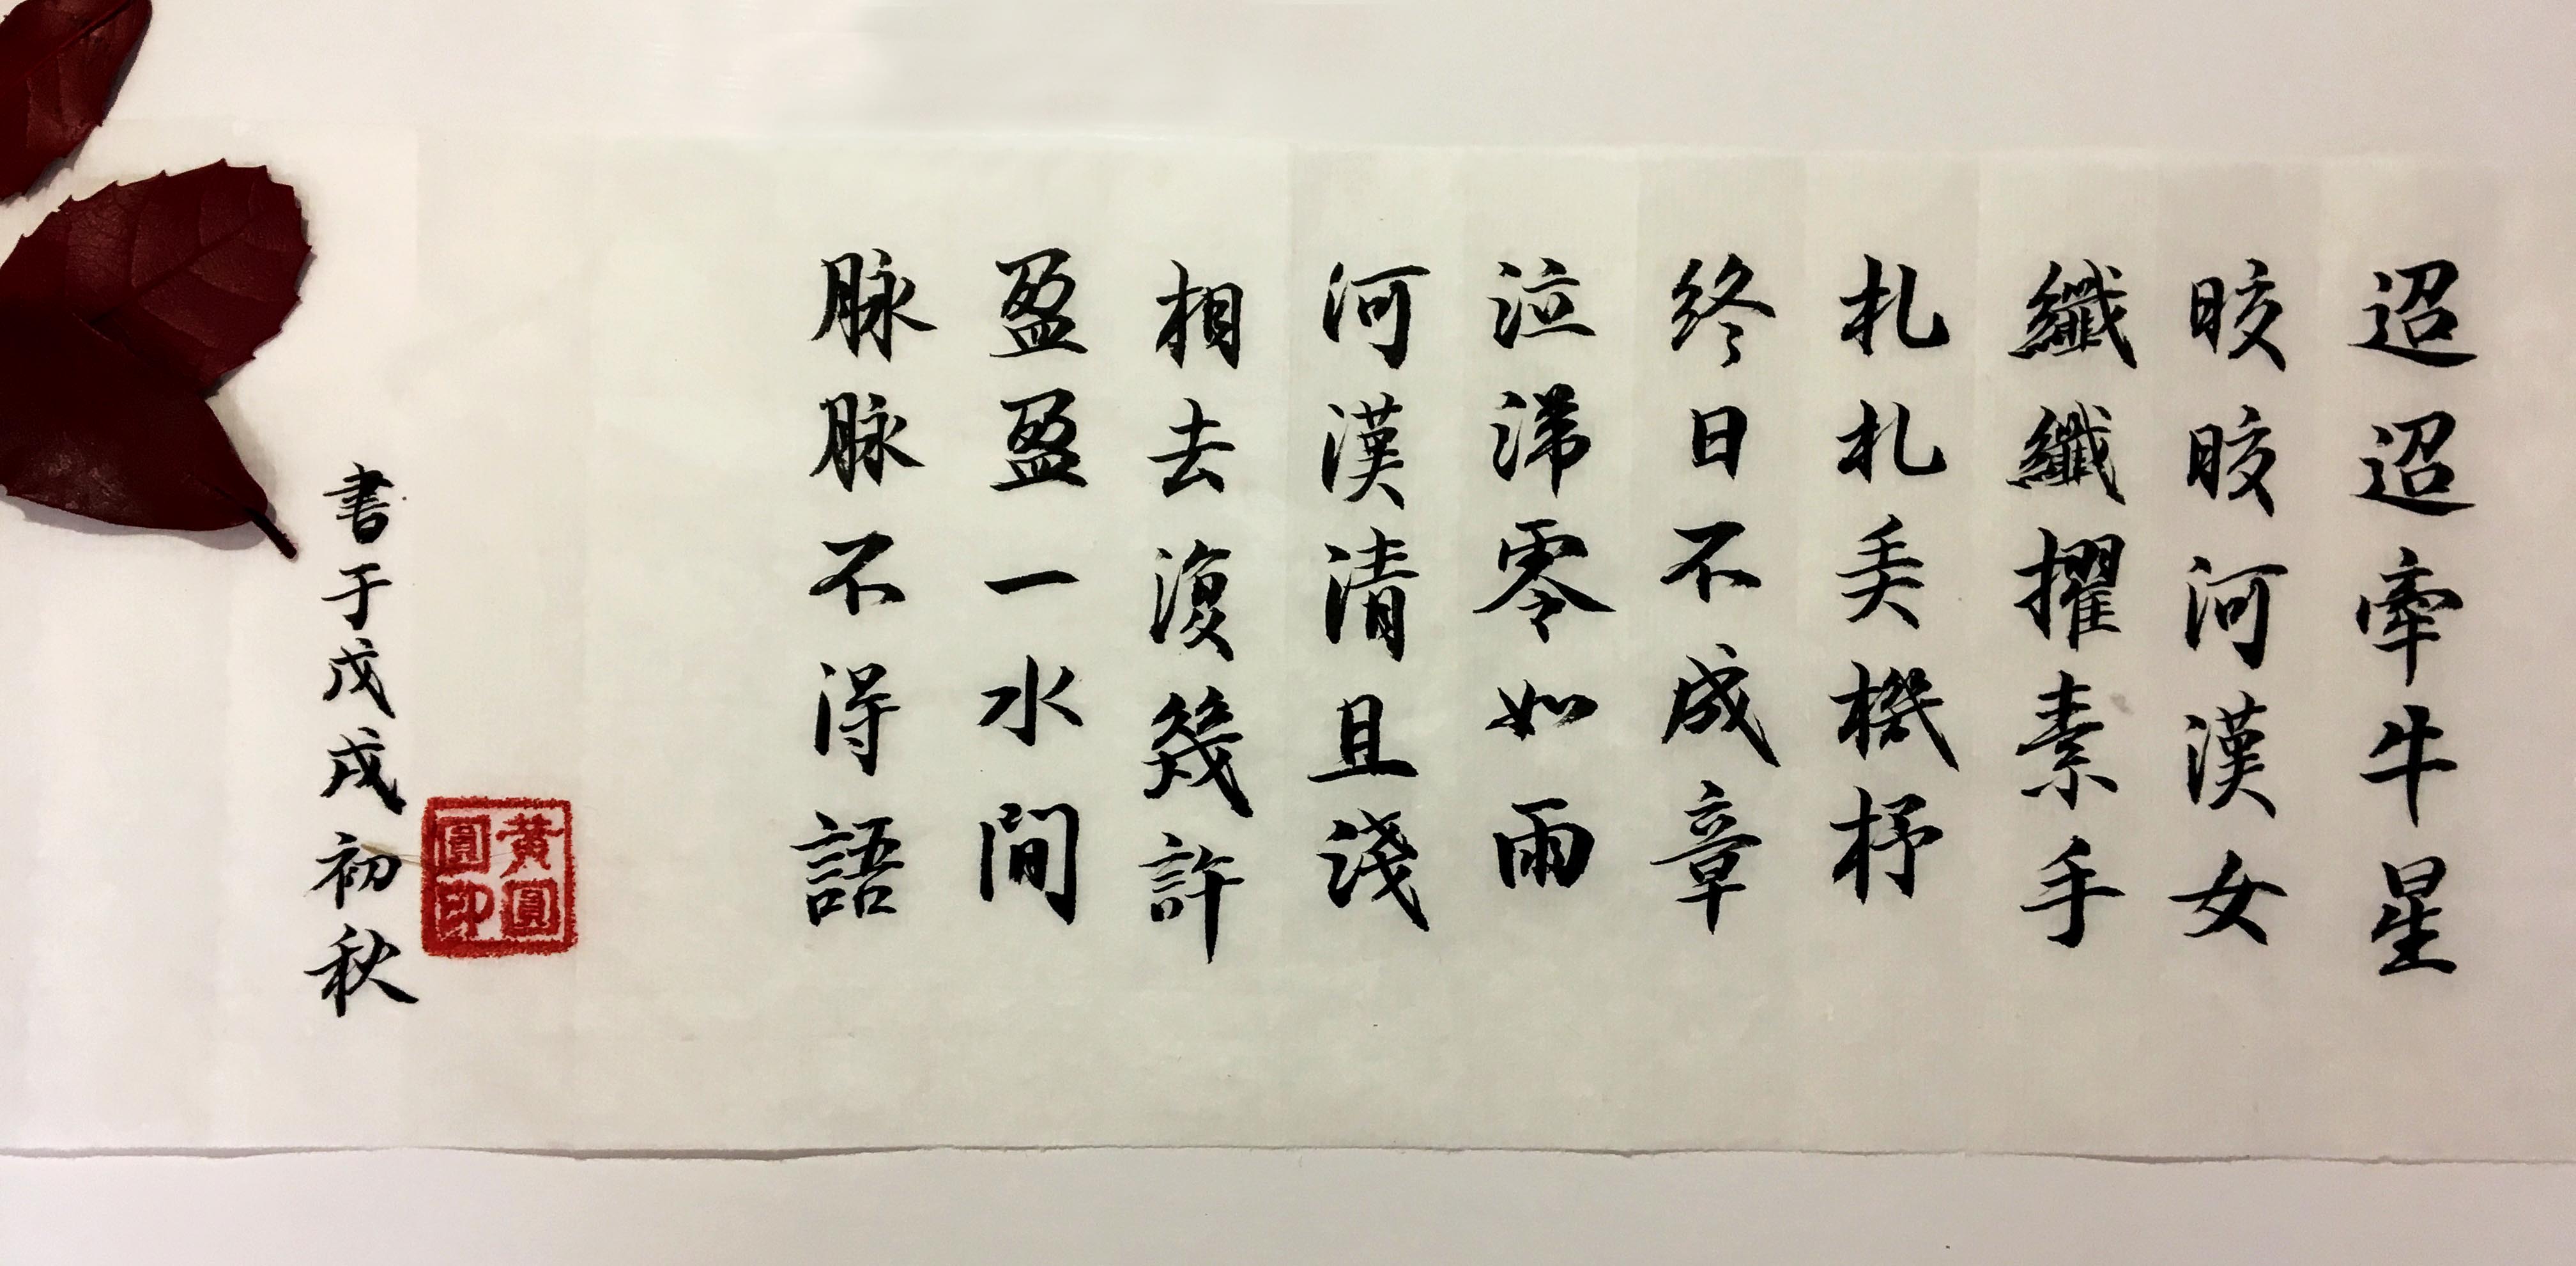 迢迢牽牛星
晈晈河漢女
纖纖擢素手
札札弄機杼
終日不成章
泣涕零如雨
河漢清且淺
相去復幾許
盈盈一水間
脉脉不得語
書于戊戌初秋
黃圓
圓印